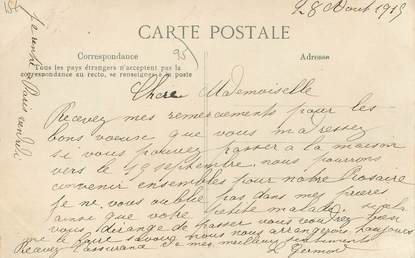 28 Aout 1915
CARTE POSTALE
Correspondance
Tous les pays étrangers n'acceptent pas la
correspondance au recto, se renseigner à la poste
Adresse
95
Chere Mademoiselle
Recevez mes remerciements pour les
bons voeux que vous m'adressez
si vous pouvez passer a la maison
vers le 19 septembre nous pourrons
convenir ensembles pour notre Rosaire
je ne vous oublie pas dans mes prieres
ainsi que votre petite malade si cela
vous derange de passer vous voudrez bien
me le faire savoir nous nous arrangerons toujours
Recevez l'assurance de mes meilleurs sentiments
Je rentre a Paris